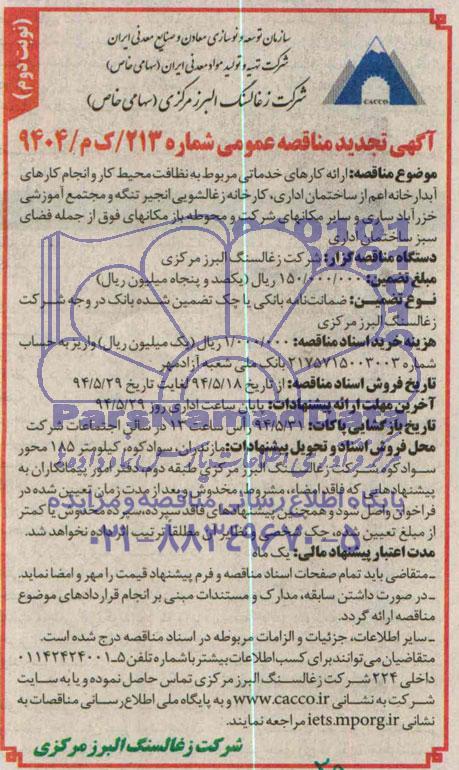 (نوبت دوم)
سازمان توسعه و نوسازی معادن و صنایع معدنی ایران
شرکت تهیه و تولید مواد معدنی ایران (سهامی خاص)
شرکت زغالسنگ البرز مرکزی (سهامی خاص)
CACCO
آگهی تجدید مناقصه عمومی شماره ۲۱۳/ک م/۹۴۰۴
موضوع مناقصه: ارائه کارهای خدماتی مربوط به نظافت محیط کار و انجام کارهای
آبدارخانه اعم از ساختمان اداری، کارخانه زغالشویی انجیر تنگه و مجتمع آموزشی
خزرآباد ساری و سایر مکانهای شرکت و محوطه باز مکانهای فوق از جمله فضای
سبز ساختمان اداری
دستگاه مناقصه گزار: شرکت زغالسنگ البرز مرکزی
مبلغ تضمین: ۱۵۰/۰۰۰/۰۰۰ ریال (یکصد و پنجاه میلیون ریال)
نوع تضمین: ضمانت‌نامه بانکی یا چک تضمین شده بانک در وجه شرکت
زغالسنگ البرز مرکزی
هزینه خرید اسناد مناقصه: ۱/۰۰۰/۰۰۰ ریال (یک میلیون ریال) واریز به حساب
شماره ۲۱۷۵۷۱۵۰۰۳۰۰۳ بانک ملی شعبه آزادمهر
تاریخ فروش اسناد مناقصه: از تاریخ ۹۴/۵/۱۸ لغایت تاریخ ۹۴/۵/۲۹
آخرین مهلت ارائه پیشنهادات: پایان ساعت اداری روز ۹۴/۵/۲۹
تاریخ بازگشایی پاکات: ۹۴/۵/۳۱ راس ساعت ۱۳ در سالن اجتماعات شرکت
محل فروش اسناد و تحویل پیشنهادات: مازندران، سوادکوه، کیلومتر ۱۸۵ محور
سوادکوه، شرکت زغالسنگ البرز مرکزی طبقه دوم، دفتر امور پیمانکاران به
پیشنهادهایی که فاقد امضاء، مشروط، مخدوش و بعد از مدت زمان تعیین شده در
فراخوان واصل شود و همچنین پیشنهادهای فاقد سپرده، سپرده مخدوش یا کمتر
از مبلغ تعیین شده، چک شخصی و نظایر آن مطلقا ترتیب اثر داده نخواهد شد.
مدت اعتبار پیشنهاد مالی: یک ماه
ـ متقاضی باید تمام صفحات اسناد مناقصه و فرم پیشنهاد قیمت را مهر و امضا نماید.
ـ در صورت داشتن سابقه، مدارک و مستندات مبنی بر انجام قراردادهای موضوع
مناقصه ارائه گردد.
ـ سایر اطلاعات، جزئیات و الزامات مربوطه در اسناد مناقصه درج شده است.
متقاضیان می‌توانند برای کسب اطلاعات بیشتر با شماره تلفن ۵ـ۰۱۱۴۲۴۲۴۰۰۱
داخلی ۲۲۴ شرکت زغالسنگ البرز مرکزی تماس حاصل نموده و یا به سایت
شرکت به نشانی www.cacco.ir و به پایگاه ملی اطلاع رسانی مناقصات به
نشانی iets.mporg.ir مراجعه نمایند.
شرکت زغالسنگ البرز مرکزی
پایگاه اطلاع رسانی مناقصه و مزایده
۰۲۱-۸۸۳۴۹۶۷۰-۵